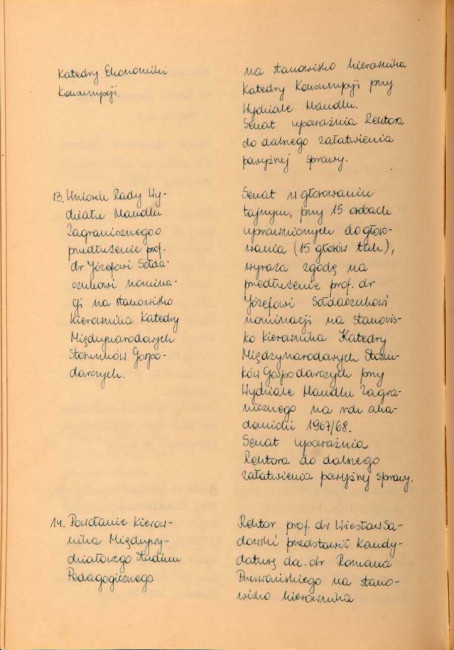 Katedry Ekonomiki
Konsumpcji.
na stanowisko kierownika
Katedry Konsumpcji przy
Wydziale Handlu.
Senat upoważnia Rektora
do dalnego załatwienia
powyższej sprawy.
13. Wniosek Rady Wy-
działu Handlu
Zagranicznego o
przedłużenie prof.
dr Józefowi Sołda-
czukowi nomina-
cji na stanowisko
Kierownika Katedry
Międzynarodowych
Stosunków Gospo-
darczych.
Senat w głosowaniu
tajnym, przy 15 osobach
uprawnionych do głoso-
wania (15 głosów tak),
wyraża zgodę na
przedłużenie prof. dr
Józefowi Sołdaczukowi
nominacji na stanowis-
ko kierownika Katedry
Międzynarodowych Stosun-
ków Gospodarczych przy
Wydziale Handlu Zagra-
nicznego na rok aka-
demicki 1967/68.
Senat upoważnia
Rektora do dalnego
załatwienia powyższej sprawy.
14. Powołanie Kierow-
nika Międzywy-
działowego Studium
Pedagogicznego
Rektor prof. dr Wiesław Sa-
dowski przedstawił kandy-
daturę doc. dr Romana
na stano-
wisko kierownika